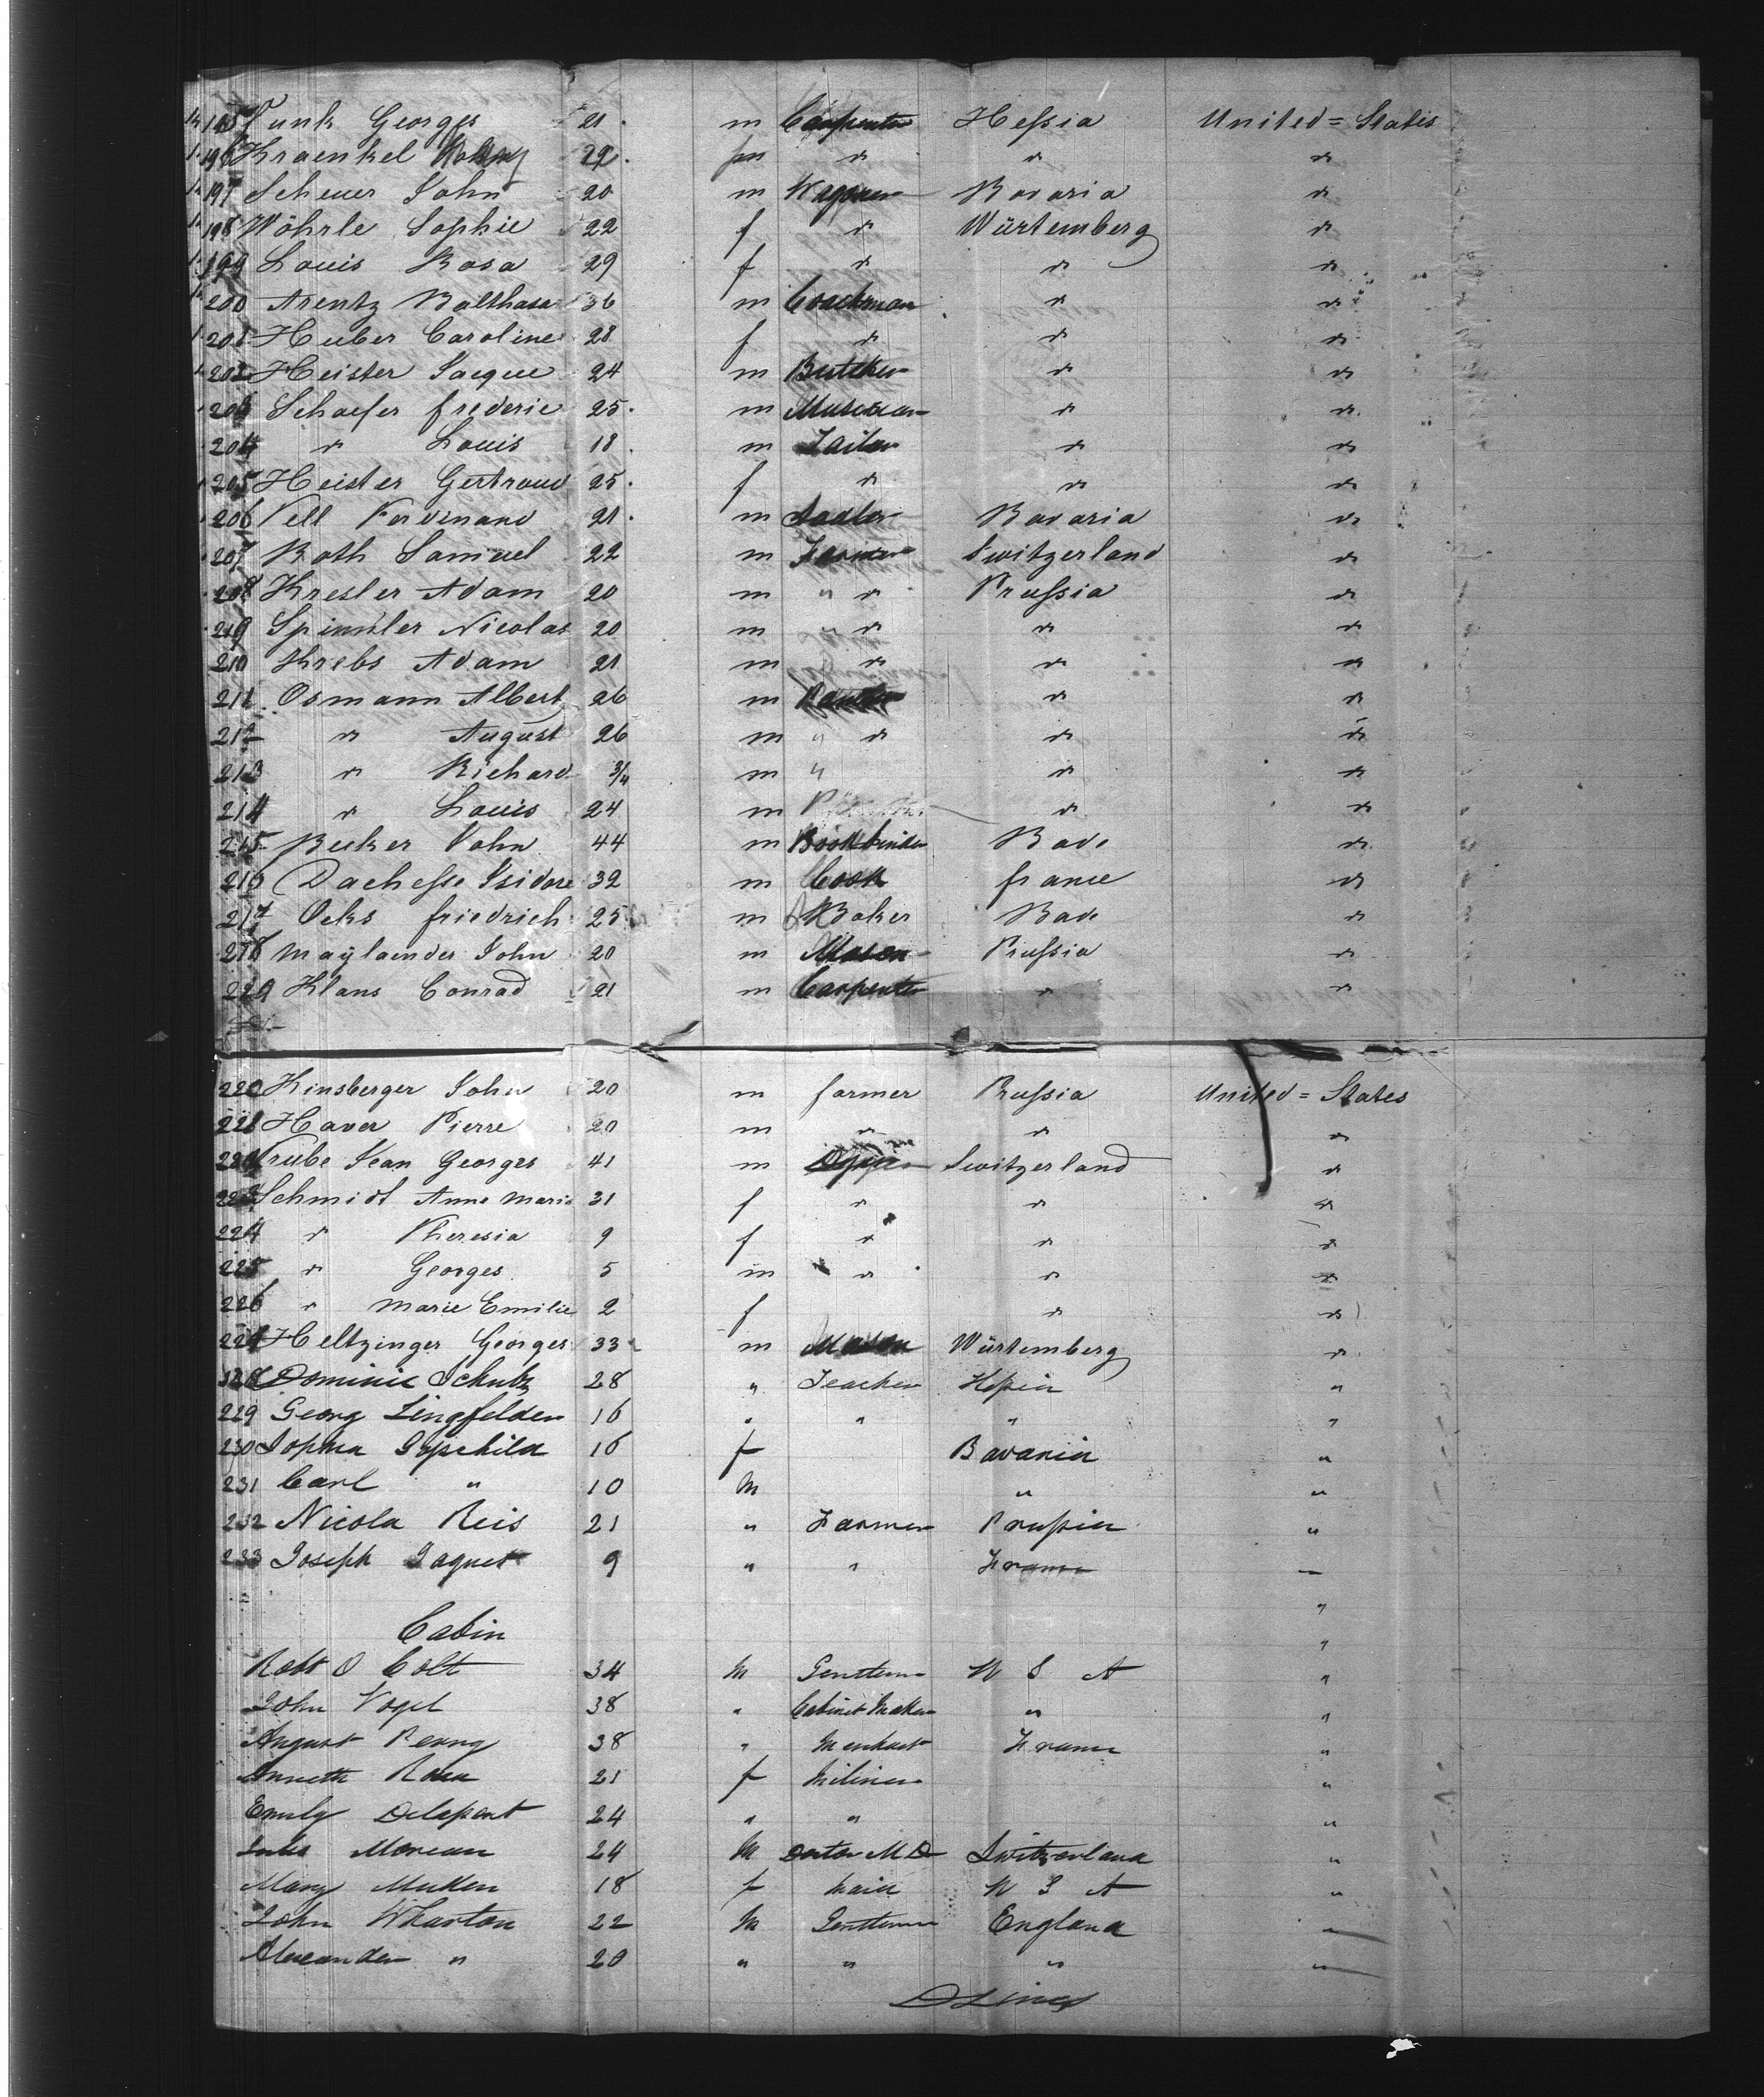 195 Funk Georges 21 m Carpenter Hessia United = States
196 Kraenkel 22 m " " "
197 Scheuer John 20 m Wagoner Bavaria "
198 Wöhrle Sophie 22 f " Würtemberg "
199 Louis Rosa 29 f " " "
200 Arentz Balthasar 36 m Coachman " "
201 Huber Caroline 28 f " " "
202 Heister Jacque 24 m Butcher " "
203 Schaefer frederic 25 m Musician " "
204 " Louis 18 m Tailor " "
205 Heister Gertraud 25 f " " "
206 Vell Ferdinand 21 m Sadler Bavaria "
207 Roth Samuel 22 m Farmer Switzerland "
208 Kresler Adam 20 m " " Prussia "
209 Spimler Nicolas 20 m " " " "
210 Krebs Adam 21 m " " "
211 Osmann Albert 26 m " "
212 " August 26 m " " " "
213 " Richard 3/4 m " " "
214 " Louis 24 m " "
215 Beker John 44 m Bookbinder Bade "
216 Dachesse Isidore 32 m Cook france "
217 Ochs friedrich 25 m Baker Bade "
218 Maylaender John 20 m Mason Prussia "
219 Klans Conrad 21 m Carpenter " "
220 Kinsberger John 20 m farmer Prussia United = States
221 Haver Pierre 20 m " " "
222 Trube Jean Georges 41 m Switzerland "
223 Schmidt Anne Marie 31 f " " "
224 " Theresia 9 f " " "
225 " Georges 5 m " " "
226 " Marie Emilie 2 f " "
227 Heltzinger Georges 33 m Mason Würtemberg "
228 Dominic Schultz 28 " Teacher Hessia "
229 Georg Lingfelder 16 " " " "
230 16 f Bavaria "
231 Carl " 10 m " "
232 Nicola Reis 21 " Farmer Prussia "
233 Joseph Jaquet 9 " " France "
Cabin
Robt O Colt 34 M Gentleman U S A "
John Vogel 38 " Cabinet Maker " "
August 38 " Merchant France "
Annette 21 f Miliner "
Emily Delapont 24 " " "
Jules Moreau 24 M Doctor M D Switzerland "
Mary 18 f Maid U S A "
John Wharton 22 M Gentleman England "
Alexander " 20 " " " "